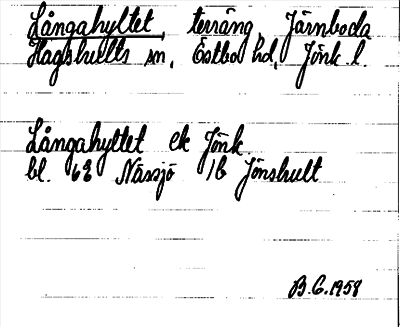 Långahyltet, terräng, Järnboda
Hagshults sn, Östbo hd, Jönk. l.
Långahyltet ek Jönk.
bl. 63 Nässjö 1b Jönshult
B.G. 1958